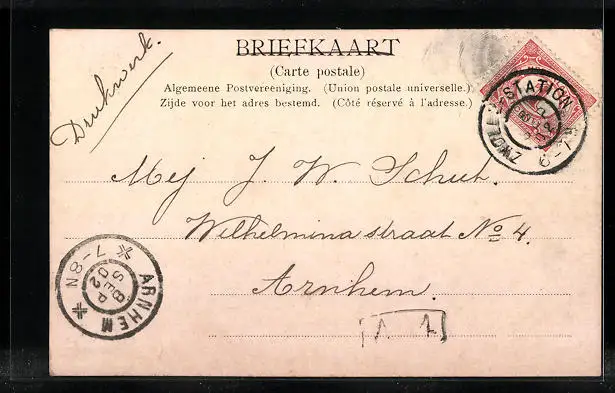 Drukwerk.
BRIEFKAART
(Carte postale)
Algemeene Postvereeniging. (Union postale universelle.)
Zijde voor het adres bestemd. (Côté réservé à l'adresse.)
ZWOLLE-STATION
Mej J. W. Schut.
Wilhelminastraat No 4.
Arnhem.
ARNHEM
* 7-8N *
8
SEP
02